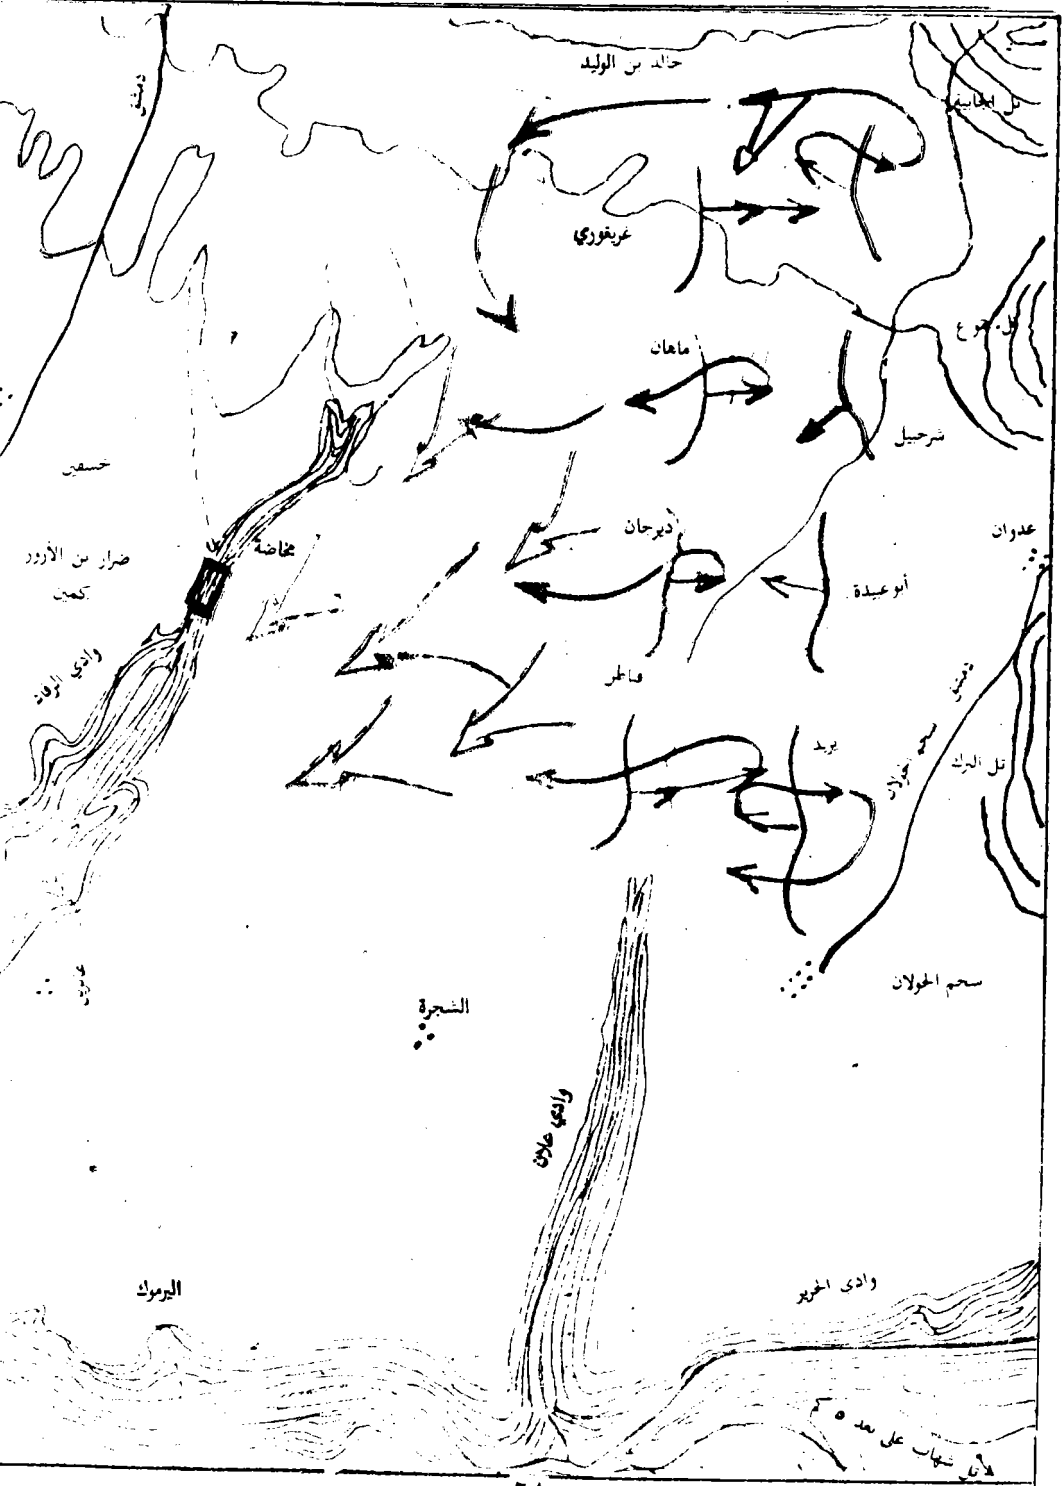 دمشق
خالد بن الوليد
تل الجابية
غريغوري
ماهان
تل جموع
شرحبيل
خسفين
ديرجان
عدوان
مخاضة
ضرار بن الأزور
كمين
أبو عبيدة
وادي الرقاد
قناطر
دمشق
سحم الجولان
يزيد
تل الترك
سحم الجولان
الشجرة
وادي علان
اليرموك
وادي الحرير
تل شهاب على بعد ٥ كم